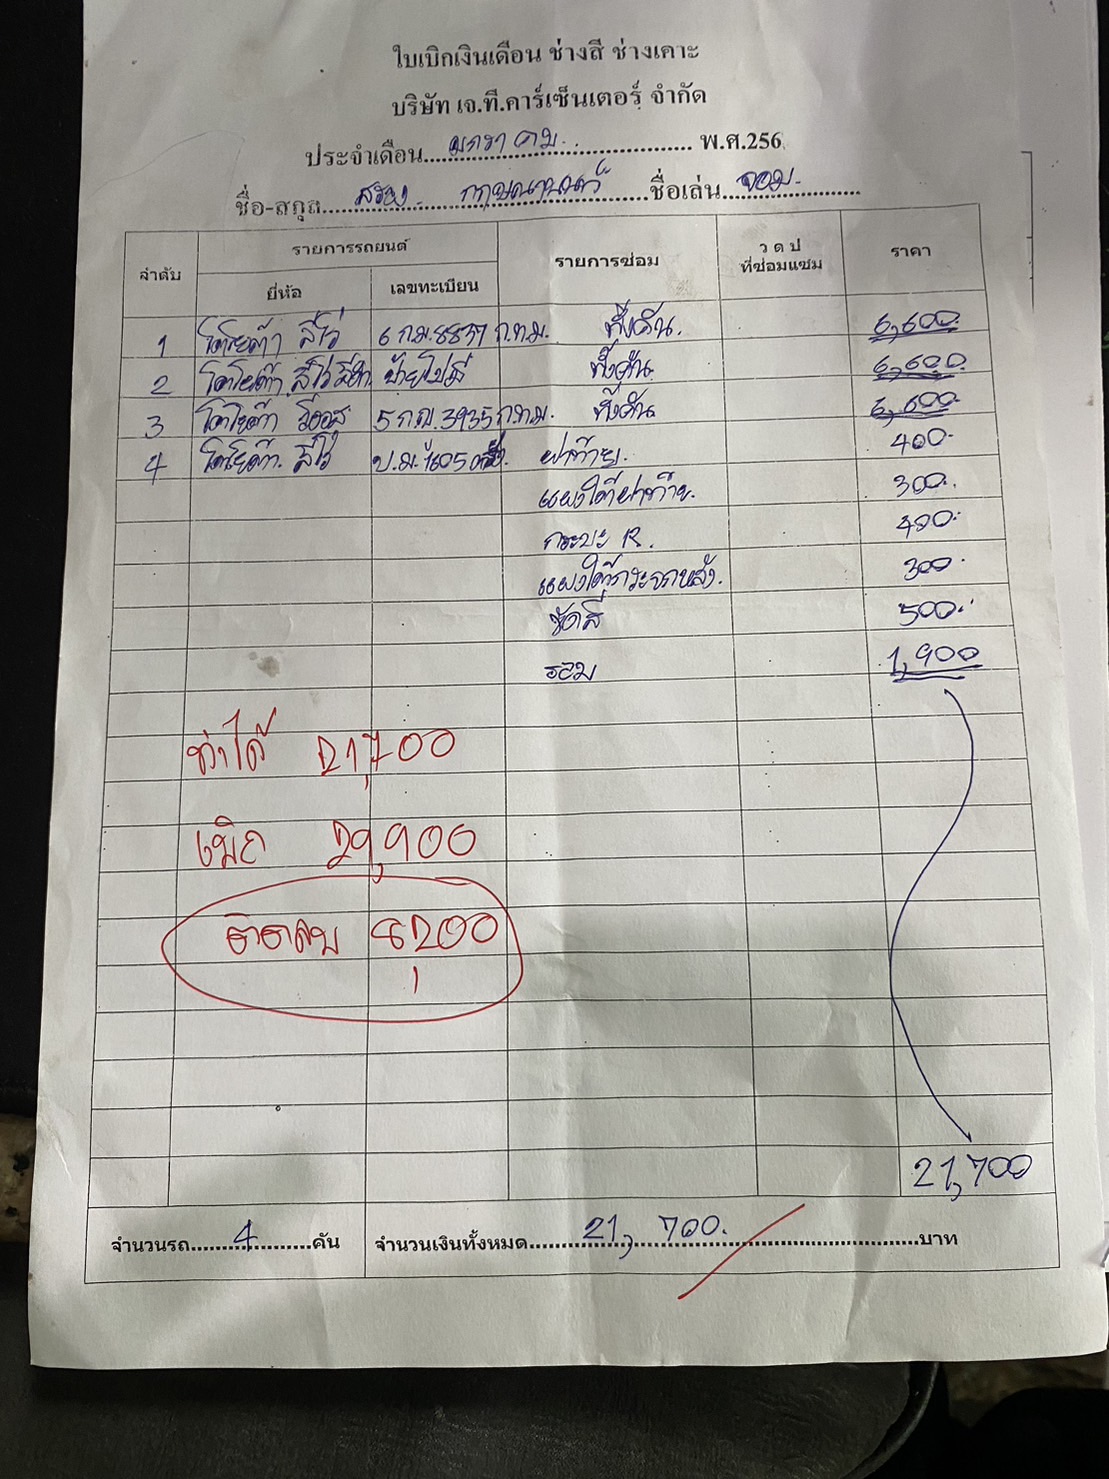 ใบเบิกเงินเดือน ช่างสี ช่างเคาะ
บริษัท เจ.ที.คาร์เซ็นเตอร์ จำกัด
ประจำเดือน....มกราคม.................. พ.ศ.256
ชื่อ-สกุล.......................................ชื่อเล่น...จอม...........
ลำดับ รายการรถยนต์ รายการซ่อม ว ด ป ที่ซ่อมแซม ราคา
ยี่ห้อ เลขทะเบียน
1 โตโยต้า รีโว่ 6 กม.8837 ก.ท.ม. ทั้งคัน. 6,600.
2 โตโยต้า รีโว่ ป้ายไม่มี ทั้งคัน 6,600.
3 โตโยต้า วีออส 5 กญ.3935 ก.ท.ม. ทั้งคัน 6,600.
4 โตโยต้า. รีโว่ บ.ม. 1605 ฝาท้าย. 400.
แผงใต้ฝาท้าย. 300.
กระบะ R. 400.
แผงใต้กระจกหลัง. 300.
ขัดสี 500.
รวม 1,900
ทำได้ 21,700
เบิก 29,900
ติดลบ 8,200
21,700
จำนวนรถ.......4.........คัน จำนวนเงินทั้งหมด........21,700..............................บาท